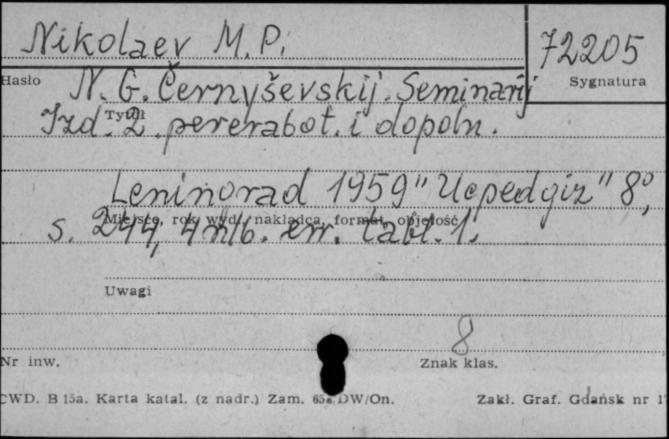 Nikolaev M.P.
72205
Hasło
Sygnatura
N. G. Černyševskij. Seminarij
Tytuł
Izd. 2. pererabot. i dopoln.
Leningrad 1959 "Učpedgiz" 8°,
Miejsce, rok wyd. nakładca, format, objętość
s. 244, 4 nlb. err. tabl. 1.
Uwagi
8
Nr inw.
Znak klas.
CWD. B 15a. Karta katal. (z nadr.) Zam. DW/On.
Zakł. Graf. Gdańsk nr